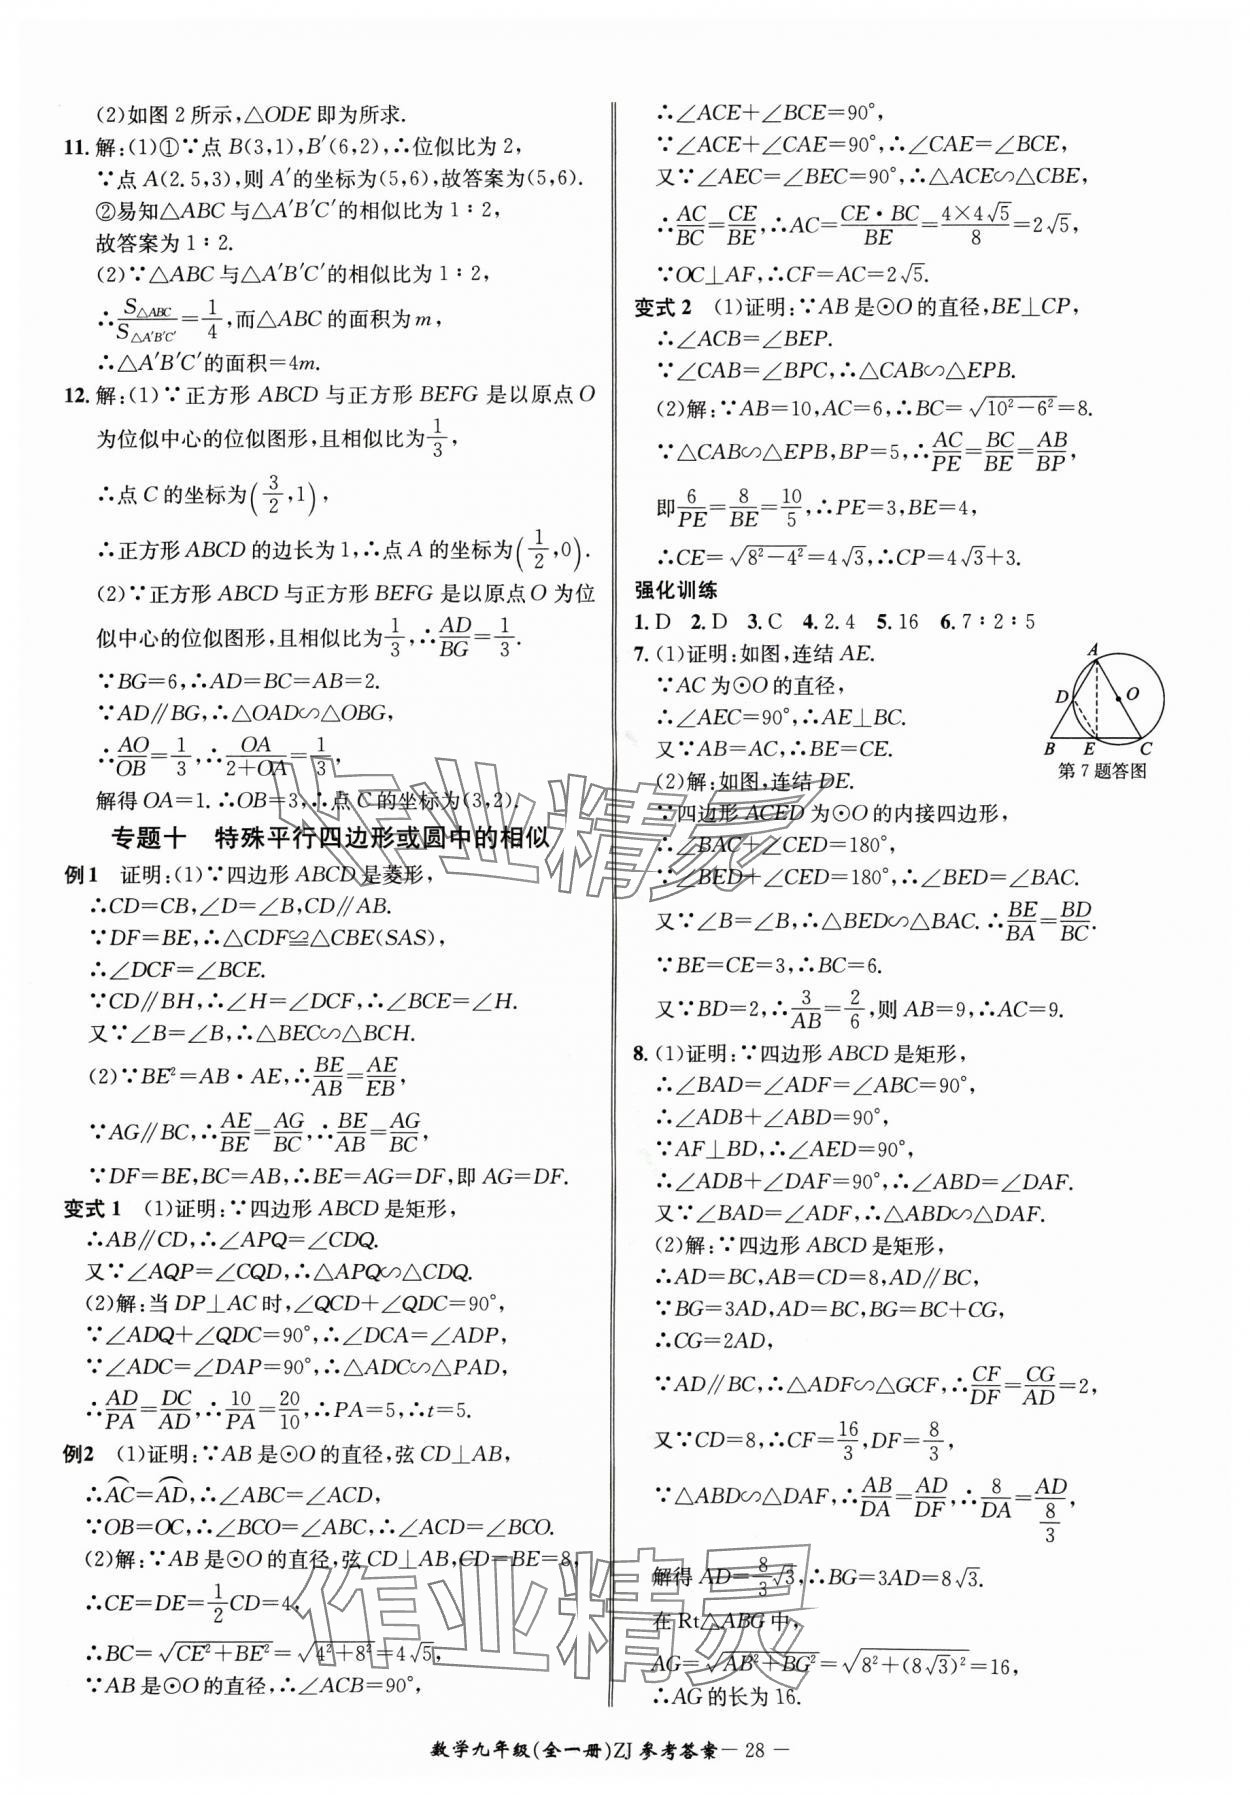 (2)如图2所示,△ODE即为所求.
11. 解:(1)①∵点B(3,1),B′(6,2),∴位似比为2,
∵点A(2.5,3),则A′的坐标为(5,6),故答案为(5,6).
②易知△ABC与△A′B′C′的相似比为1∶2,
故答案为1∶2.
(2)∵△ABC与△A′B′C′的相似比为1∶2,
∴S△ABC/S△A′B′C′=1/4,而△ABC的面积为m,
∴△A′B′C′的面积=4m.
12. 解:(1)∵正方形ABCD与正方形BEFG是以原点O
为位似中心的位似图形,且相似比为1/3,
∴点C的坐标为(3/2,1),
∴正方形ABCD的边长为1,∴点A的坐标为(1/2,0).
(2)∵正方形ABCD与正方形BEFG是以原点O为位
似中心的位似图形,且相似比为1/3,∴AD/BG=1/3.
∵BG=6,∴AD=BC=AB=2.
∵AD∥BG,∴△OAD∽△OBG,
∴AO/OB=1/3,∴OA/(2+OA)=1/3,
解得OA=1.∴OB=3,∴点C的坐标为(3,2).
专题十 特殊平行四边形或圆中的相似
例1 证明:(1)∵四边形ABCD是菱形,
∴CD=CB,∠D=∠B,CD∥AB.
∵DF=BE,∴△CDF≌△CBE(SAS),
∴∠DCF=∠BCE.
∵CD∥BH,∴∠H=∠DCF,∴∠BCE=∠H.
又∵∠B=∠B,∴△BEC∽△BCH.
(2)∵BE²=AB·AE,∴BE/AB=AE/EB,
∵AG∥BC,∴AE/BE=AG/BC,∴BE/AB=AG/BC,
∵DF=BE,BC=AB,∴BE=AG=DF,即AG=DF.
变式1 (1)证明:∵四边形ABCD是矩形,
∴AB∥CD,∴∠APQ=∠CDQ.
又∵∠AQP=∠CQD,∴△APQ∽△CDQ.
(2)解:当DP⊥AC时,∠QCD+∠QDC=90°,
∵∠ADQ+∠QDC=90°,∴∠DCA=∠ADP,
∵∠ADC=∠DAP=90°,∴△ADC∽△PAD,
∴AD/PA=DC/AD,∴10/PA=20/10,∴PA=5,∴t=5.
例2 (1)证明:∵AB是⊙O的直径,弦CD⊥AB,
∴⌒AC=⌒AD,∴∠ABC=∠ACD,
∵OB=OC,∴∠BCO=∠ABC,∴∠ACD=∠BCO.
(2)解:∵AB是⊙O的直径,弦CD⊥AB,CD=BE=8,
∴CE=DE=1/2CD=4,
∴BC=√(CE²+BE²)=√(4²+8²)=4√5,
∵AB是⊙O的直径,∴∠ACB=90°,
∴∠ACE+∠BCE=90°,
∵∠ACE+∠CAE=90°,∴∠CAE=∠BCE,
又∵∠AEC=∠BEC=90°,∴△ACE∽△CBE,
∴AC/BC=CE/BE,∴AC=CE·BC/BE=4×4√5/8=2√5,
∵OC⊥AF,∴CF=AC=2√5.
变式2 (1)证明:∵AB是⊙O的直径,BE⊥CP,
∴∠ACB=∠BEP.
∵∠CAB=∠BPC,∴△CAB∽△EPB.
(2)解:∵AB=10,AC=6,∴BC=√(10²-6²)=8.
∵△CAB∽△EPB,BP=5,∴AC/PE=BC/BE=AB/BP,
即6/PE=8/BE=10/5,∴PE=3,BE=4,
∴CE=√(8²-4²)=4√3,∴CP=4√3+3.
强化训练
1. D 2. D 3. C 4. 2.4 5. 16 6. 7∶2∶5
7. (1)证明:如图,连结AE.
∵AC为⊙O的直径,
∴∠AEC=90°,∴AE⊥BC.
又∵AB=AC,∴BE=CE.
(2)解:如图,连结DE.
A
D
O
B
E
C
第7题答图
∵四边形ACED为⊙O的内接四边形,
∴∠BAC+∠CED=180°,
∵∠BED+∠CED=180°,∴∠BED=∠BAC.
又∵∠B=∠B,∴△BED∽△BAC.∴BE/BA=BD/BC.
∵BE=CE=3,∴BC=6.
又∵BD=2,∴3/AB=2/6,则AB=9,∴AC=9.
8. (1)证明:∵四边形ABCD是矩形,
∴∠BAD=∠ADF=∠ABC=90°,
∴∠ADB+∠ABD=90°,
∵AF⊥BD,∴∠AED=90°,
∴∠ADB+∠DAF=90°,∴∠ABD=∠DAF.
又∵∠BAD=∠ADF,∴△ABD∽△DAF.
(2)解:∵四边形ABCD是矩形,
∴AD=BC,AB=CD=8,AD∥BC,
∵BG=3AD,AD=BC,BG=BC+CG,
∴CG=2AD,
∵AD∥BC,∴△ADF∽△GCF,∴CF/DF=CG/AD=2,
又∵CD=8,∴CF=16/3,DF=8/3,
∵△ABD∽△DAF,∴AB/DA=AD/DF,∴8/DA=AD/(8/3),
解得AD=8/3√3,∴BG=3AD=8√3.
在Rt△ABG中,
AG=√(AB²+BG²)=√(8²+(8√3)²)=16,
∴AG的长为16.
作业精灵
作业精灵
数学九年级(全一册)ZJ 参考答案— 28 —